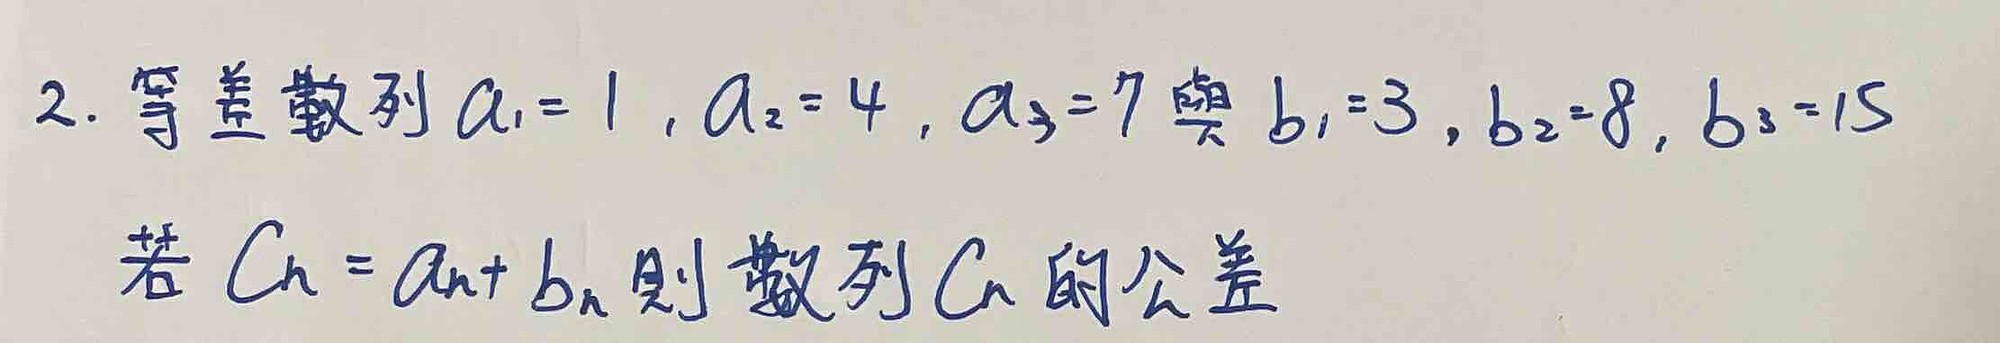 2. 等差數列 a₁=1, a₂=4, a₃=7 與 b₁=3, b₂=8, b₃=15
若 Cₙ=aₙ+bₙ 則數列 Cₙ 的公差